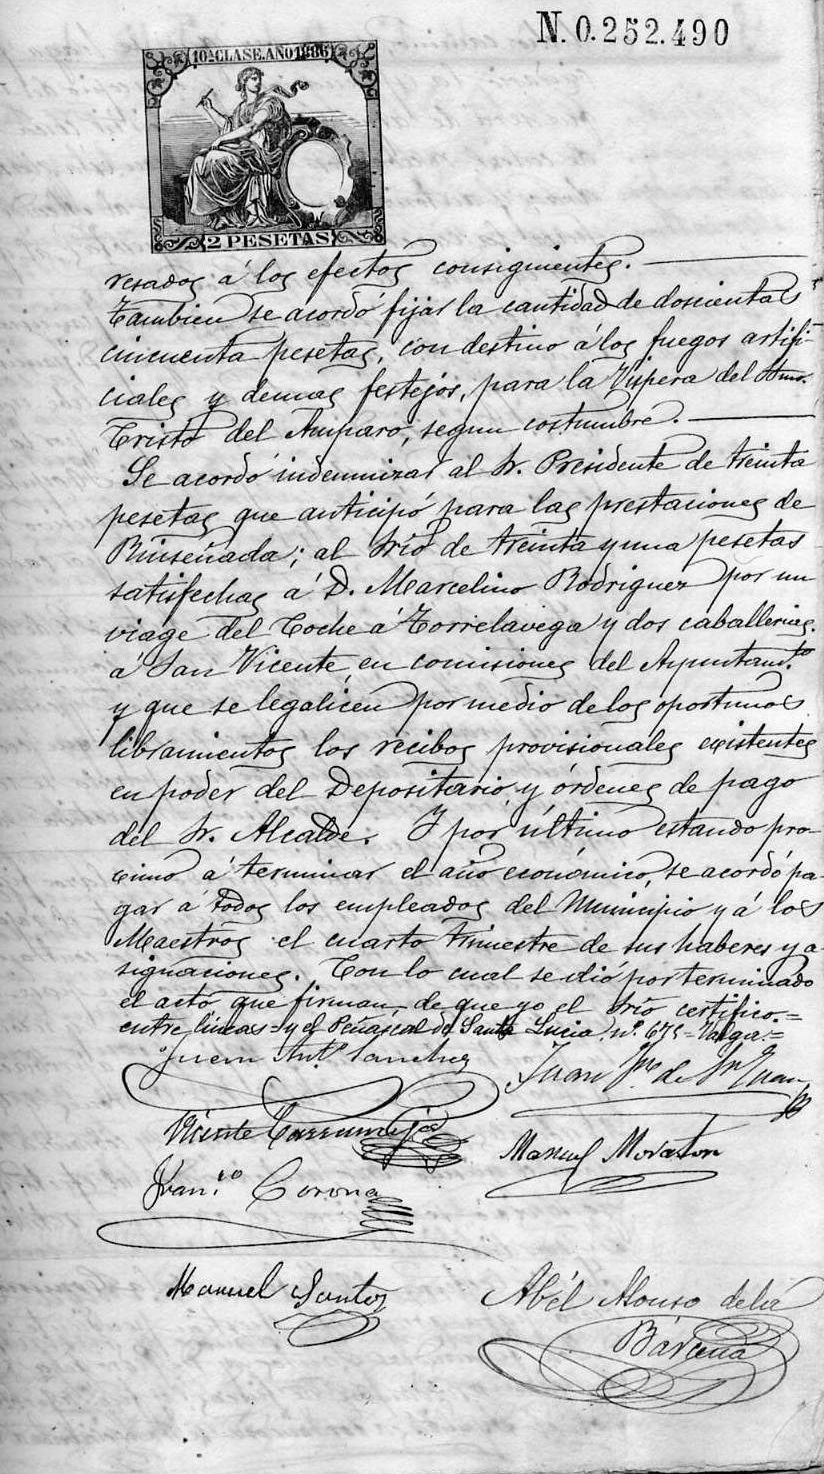 N. 0.252.490
10ª CLASE. AÑO 1886
2 PESETAS
resados á los efectos consiguientes.
Tambien se acordó fijar la cantidad de doscientas
cincuenta pesetas, con destino á los fuegos artifi-
ciales y demas festejos, para la Víspera del Stmo.
Cristo del Amparo, segun costumbre.
Se acordó indemnizar al Sr. Presidente de treinta
pesetas que anticipó para las prestaciones de
Binseñada; al Srio de treinta y una pesetas
satisfechas á D. Marcelino Rodriguez por un
viage del Coche á Torrelavega y dos caballerias
á San Vicente en comisiones del Ayuntam.to
y que se legalicen por medio de los oportunos
libramientos los recibos provisionales existentes
en poder del Depositario y órdenes de pago
del Sr. Alcalde. Y por último estando pro-
cimo á terminar el año económico, se acordó pa-
gar á todos los empleados del Municipio y á los
Maestros el cuarto trimestre de sus haberes y a-
signaciones. Con lo cual se dió por terminado
el acto que firman, de que yo el Srio certifico.=
entre lineas = y el Peñascal de Santa Lucia nº 675 = Valga.=
Juan Ant.º Sanchez
Juan
Vicente
Manuel Moraton
Fran.co Corona
Manuel Santos
Abél Alonso de la
Bárcena